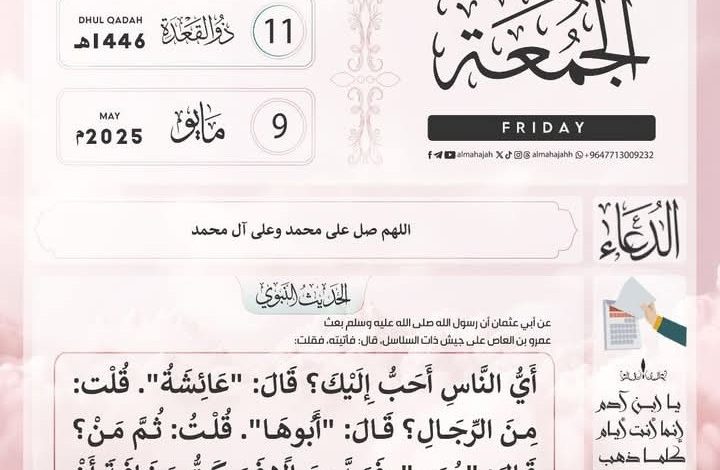 الجمعة
FRIDAY
almahajah almahajahh +9647713009232
DHUL QADAH
1446هـ
ذُو القَعْدَة
11
MAY
2025م
مايو
9
الدُعَاء
اللهم صل على محمد وعلى آل محمد
الحديث النبوي
عن أبي عثمان أن رسول الله صلى الله عليه وسلم بعث
عمرو بن العاص على جيش ذات السلاسل، قال: فأتيته، فقلت:
أَيُّ النَّاسِ أَحَبُّ إِلَيْكَ؟ قَالَ: "عَائِشَةُ". قُلْت:
مِنَ الرِّجَالِ؟ قَالَ: "أَبُوهَا". قُلْتُ: ثُمَّ مَنْ؟
يا ابن آدم
إنما أنت أيام
كلما ذهب